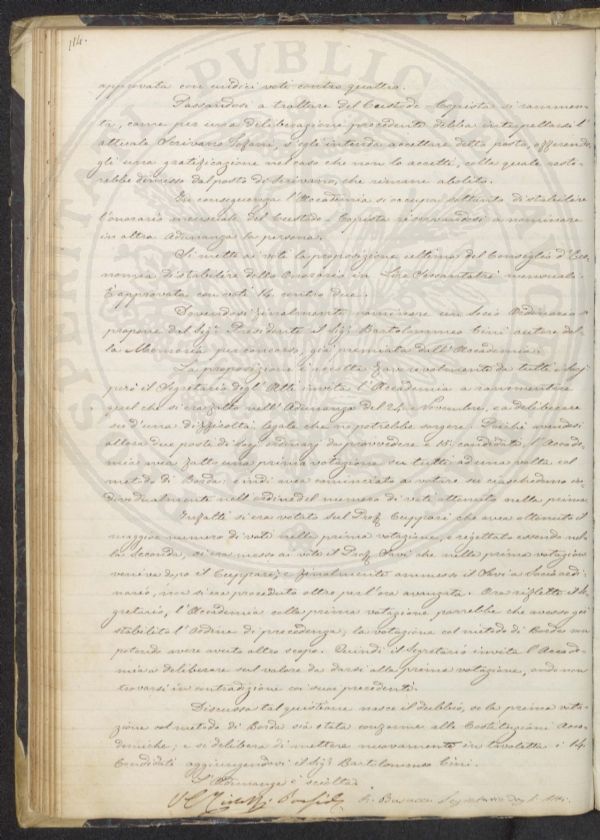 114.
approvata con undici voti contro quattro.
Passandosi a trattare del Custode-Copista si rammen-
ta, come per una deliberazione precedente debba interpellarsi l'
attuale Scrivano se egli intenda accettare detto posto, offerendo
gli una gratificazione nel caso che non lo accetti, colla quale reste-
rebbe dimesso dal posto di Scrivano, che rimane abolito.
In conseguenza l'Accademia si occupa soltanto di stabilire
l'onorario mensuale del Custode-Copista riserbandosi a nominare
in altra Adunanza la persona.
Si mette ai voti la proposizione ultima del Consiglio d'Eco-
nomia di stabilire detto Onorario in Lire Sessantatre mensuali.
È approvata con voti 14 contro due.
Dovendosi finalmente nominare un Socio Ordinario
propone del Sigr. Presidente il Sigr. Bartolommeo Cini autore del-
la Memoria per concorso, già premiata dall'Accademia.
La proposizione è accolta favorevolmente da tutti;
però il Segretario degli Atti invita l'Accademia a rammentare
quel che si era fatto nell'Adunanza del 24 Novembre, e a deliberare
su d'una difficoltà legale che ne potrebbe sorgere. Poiché avendosi
allora due posti di Soci ordinarj da provvedere e 15 candidati l'Accade-
mia avea fatto una prima votazione su tutti ad una volta col
metodo di Borda: e indi avea cominciato a votare su ciascheduno in-
dividualmente nell'ordine del numero di voti ottenuto nella prima
Infatti si era votato sul Prof. Cuppari che avea ottenuto il
maggior numero di voti nella prima votazione, e rigettato essendo nel-
la seconda, si era messo ai voti il Prof. Savi che nella prima votazione
veniva dopo il Cuppari; e finalmente ammesso il Savi a Socio ordi-
nario, non si era proceduto oltre per l'ora avanzata. Ora riflette il Se-
gretario, l'Accademia colla prima votazione parrebbe che avesse già
stabilito l'Ordine di precedenza; la votazione col metodo di Borda non
potendo avere avuto altro scopo. Quindi il Segretario invita l'Accade-
mia a deliberare sul valore da darsi alla prima votazione, onde non
trovarsi in contradizione coi suoi precedenti.
Discussa tal quistione nasce il dubbio, se la prima vota-
zione col metodo di Borda sia stata conforme alle Costituzioni Acca-
demiche; e si delibera di mettere nuovamente in tavoletta i 14
Candidati aggiungendovi il Sigr. Bartolommeo Cini.
L'Adunanza è sciolta.
Segretario degli Atti.